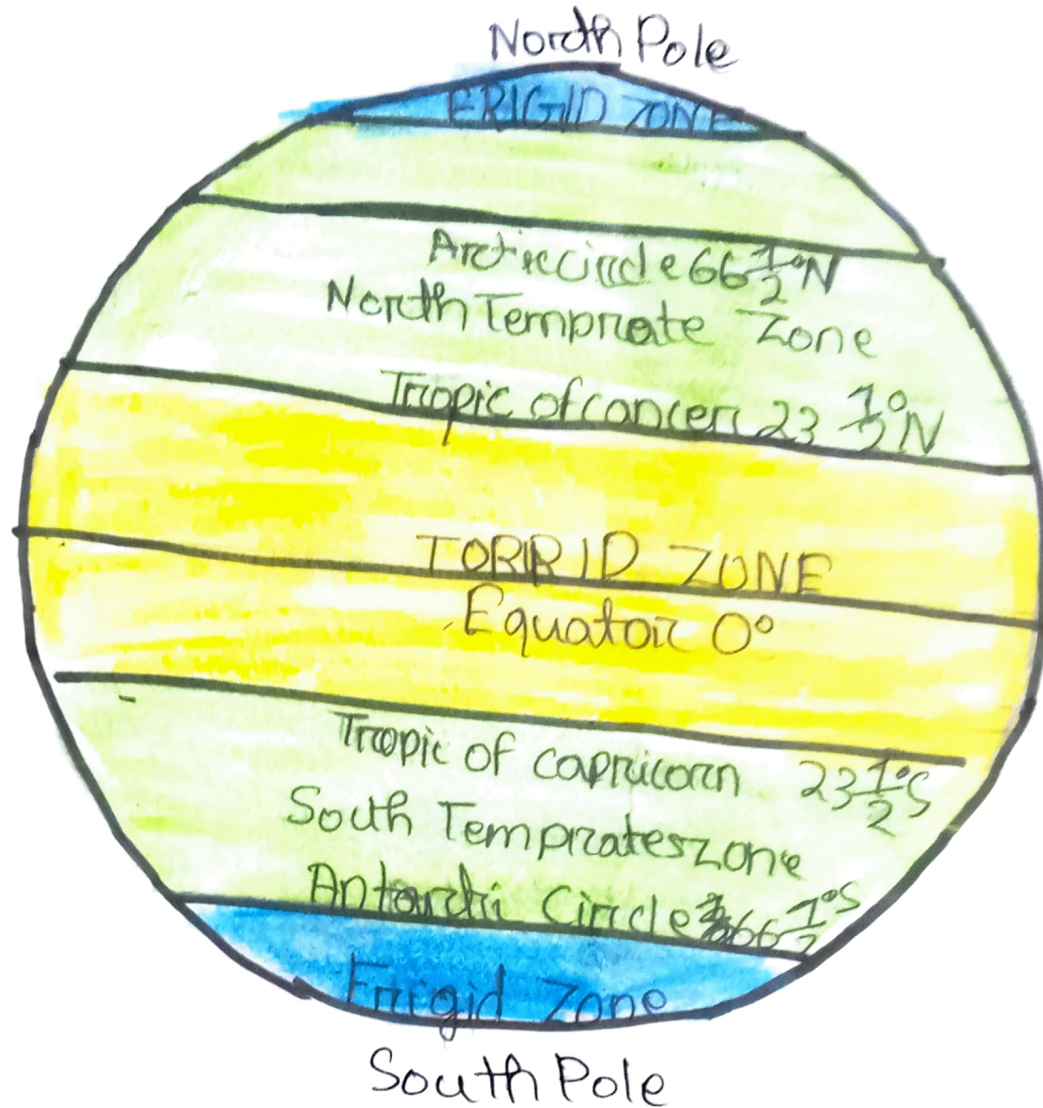 North Pole
FRIGID ZONE
Arctic Circle 66 1/2°N
North Temprate Zone
Tropic of cancer 23 1/2°N
TORRID ZONE
Equator 0°
Tropic of capricorn 23 1/2°S
South Temprates zone
Antarctic Circle 66 1/2°S
Frigid Zone
South Pole